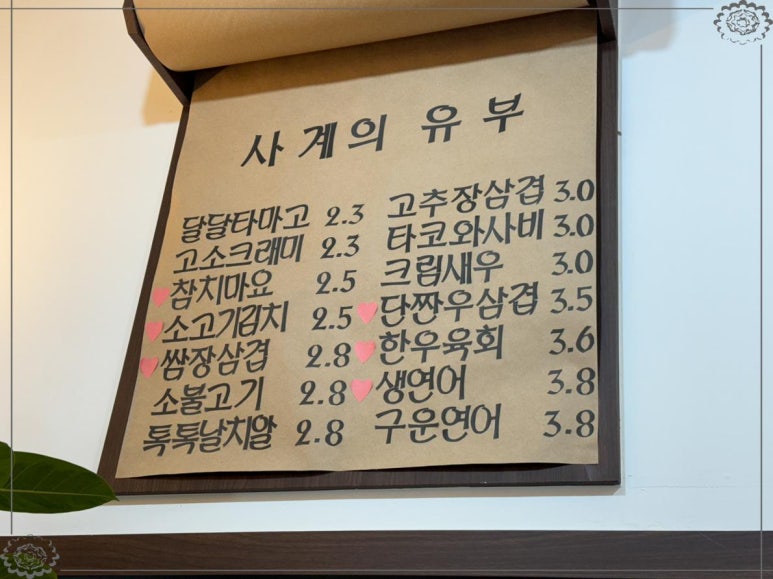 사계의 유부
달달타마고 2.3
고소크래미 2.3
참치마요 2.5
소고기김치 2.5
쌈장삼겹 2.8
소불고기 2.8
톡톡날치알 2.8
고추장삼겹 3.0
타코와사비 3.0
크림새우 3.0
단짠우삼겹 3.5
한우육회 3.6
생연어 3.8
구운연어 3.8